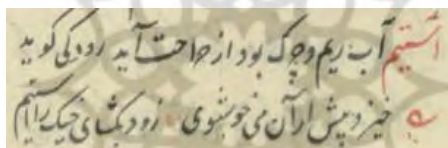 آستیم آب ریم و چرک بود از جراحت آید رودکی گوید
خیز و پیش ار آن می خوشبوی زود بگشای خیک را آستیم